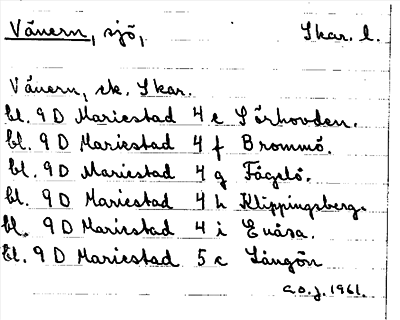 Vänern, sjö, Skar. l.
Vänern, ek. Skar.
bl. 9 D Mariestad 4 e Sörhovden.
bl. 9 D Mariestad 4 f Brommö.
bl. 9 D Mariestad 4 g Fågelö.
bl. 9 D Mariestad 4 h Klippingsberg.
bl. 9 D Mariestad 4 i Enåsa.
bl. 9 D Mariestad 5 c Långön
a.o.j. 1961.